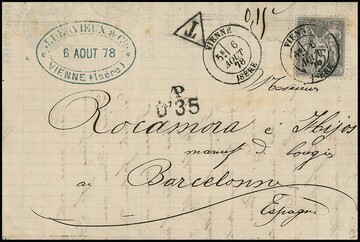 J. LERVIEUX & Cie
6 AOUT 78
VIENNE (Isère)
T
0,15
VIENNE
5E 6
AOUT
78
ISÈRE
VIENNE
6
AOUT
ISÈRE
P
D'35
Monsieur
Rocamora é Hijos
manuf de bougies
a Barcelonne
Espagne